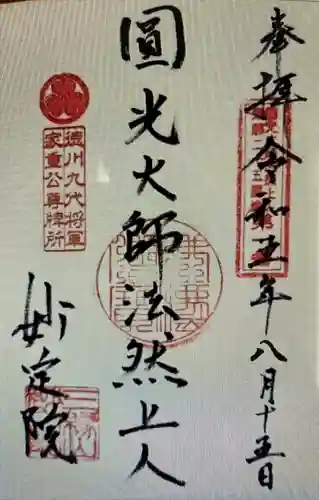 奉拝 令和五年八月十五日
圓光大師法然上人
徳川九代将軍
家重公尊牌所
妙定院